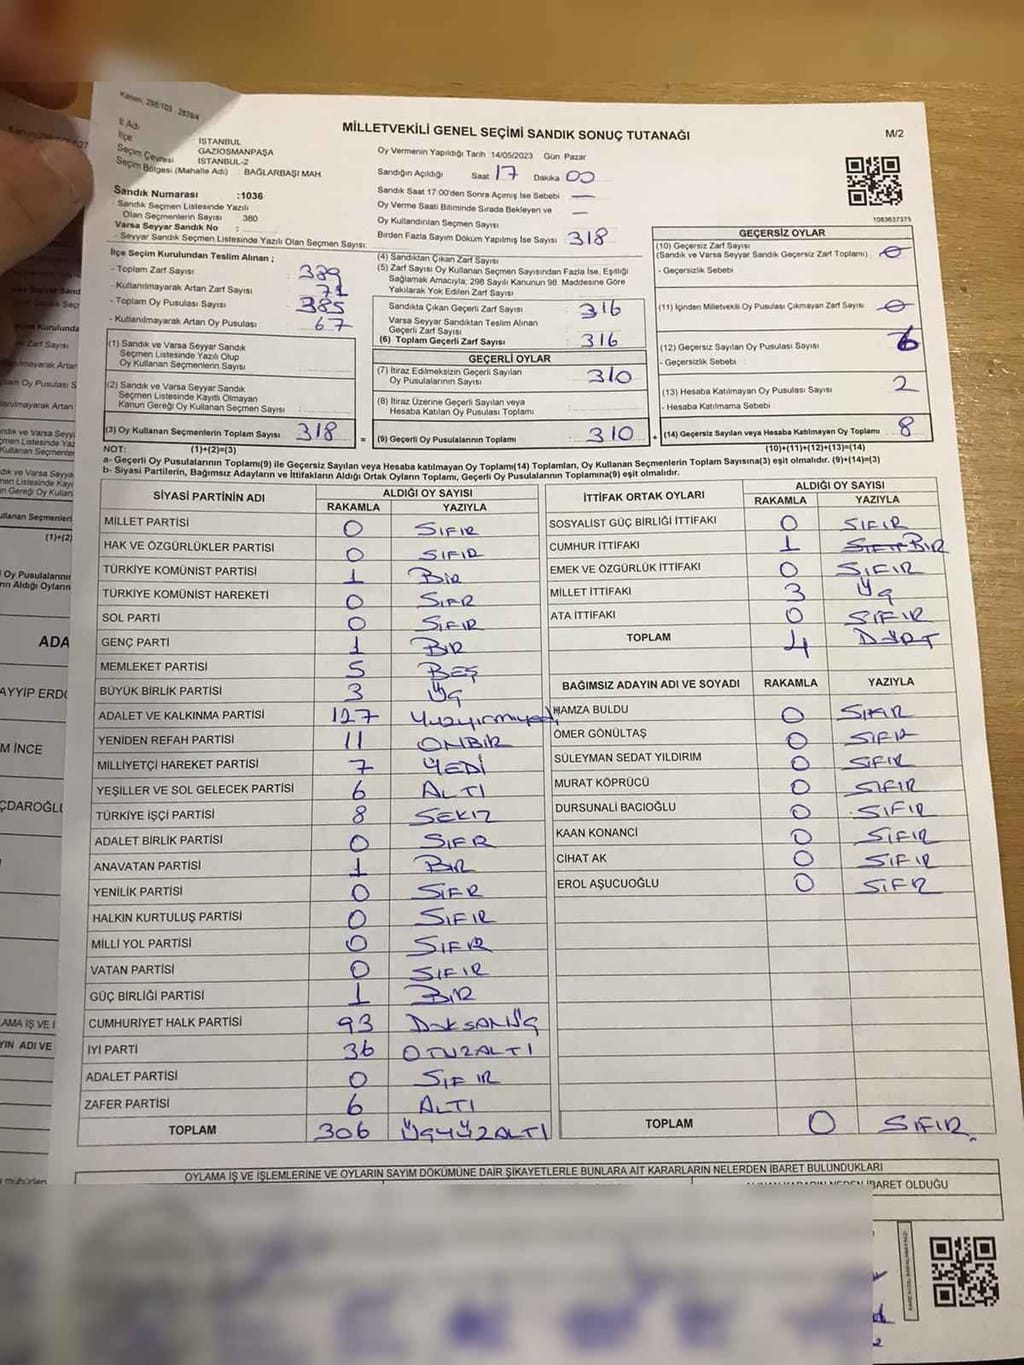 Kanun; 298/103 - 2839/4
MİLLETVEKİLİ GENEL SEÇİMİ SANDIK SONUÇ TUTANAĞI
M/2
İl Adı İSTANBUL
İlçe GAZİOSMANPAŞA
Seçim Çevresi İSTANBUL-2
Seçim Bölgesi (Mahalle Adı) : BAĞLARBAŞI MAH
Sandık Numarası :1036
- Sandık Seçmen Listesinde Yazılı
Olan Seçmenlerin Sayısı 380
Varsa Seyyar Sandık No :
- Seyyar Sandık Seçmen Listesinde Yazılı Olan Seçmen Sayısı:
Oy Vermenin Yapıldığı Tarih 14/05/2023 Gün Pazar
Sandığın Açıldığı Saat 17 Dakika 00
Sandık Saat 17:00'den Sonra Açımış İse Sebebi —
Oy Verme Saati Bitiminde Sırada Bekleyen ve
Oy Kullandırılan Seçmen Sayısı —
Birden Fazla Sayım Döküm Yapılmış İse Sayısı 318
1083637375
İlçe Seçim Kurulundan Teslim Alınan ;
- Toplam Zarf Sayısı : 389
- Kullanılmayarak Artan Zarf Sayısı : 71
- Toplam Oy Pusulası Sayısı : 385
- Kullanılmayarak Artan Oy Pusulası : 67
(1) Sandık ve Varsa Seyyar Sandık
Seçmen Listesinde Yazılı Olup
Oy Kullanan Seçmenlerin Sayısı
(2) Sandık ve Varsa Seyyar Sandık
Seçmen Listesinde Kayıtlı Olmayan
Kanun Gereği Oy Kullanan Seçmen Sayısı
(3) Oy Kullanan Seçmenlerin Toplam Sayısı 318
(4) Sandıktan Çıkan Zarf Sayısı
(5) Zarf Sayısı Oy Kullanan Seçmen Sayısından Fazla İse, Eşitliği
Sağlamak Amacıyla; 298 Sayılı Kanunun 98. Maddesine Göre
Yakılarak Yok Edilen Zarf Sayısı
Sandıkta Çıkan Geçerli Zarf Sayısı 316
Varsa Seyyar Sandıktan Teslim Alınan
Geçerli Zarf Sayısı
(6) Toplam Geçerli Zarf Sayısı 316
GEÇERLİ OYLAR
(7) İtiraz Edilmeksizin Geçerli Sayılan
Oy Pusulalarının Sayısı 310
(8) İtiraz Üzerine Geçerli Sayılan veya
Hesaba Katılan Oy Pusulası Toplamı
= (9) Geçerli Oy Pusulalarının Toplamı 310
GEÇERSİZ OYLAR
(10) Geçersiz Zarf Sayısı
(Sandık ve Varsa Seyyar Sandık Geçersiz Zarf Toplamı)
- Geçersizlik Sebebi
(11) İçinden Milletvekili Oy Pusulası Çıkmayan Zarf Sayısı
(12) Geçersiz Sayılan Oy Pusulası Sayısı 6
- Geçersizlik Sebebi :
(13) Hesaba Katılmayan Oy Pusulası Sayısı 2
- Hesaba Katılmama Sebebi
+ (14) Geçersiz Sayılan veya Hesaba Katılmayan Oy Toplamı 8
NOT: (1)+(2)=(3)
(10)+(11)+(12)+(13)=(14)
a- Geçerli Oy Pusulalarının Toplamı(9) ile Geçersiz Sayılan veya Hesaba katılmayan Oy Toplamı(14) Toplamları, Oy Kullanan Seçmenlerin Toplam Sayısına(3) eşit olmalıdır. (9)+(14)=(3)
b- Siyasi Partilerin, Bağımsız Adayların ve İttifakların Aldığı Ortak Oyların Toplamı, Geçerli Oy Pusulalarının Toplamına(9) eşit olmalıdır.
SİYASİ PARTİNİN ADI ALDIĞI OY SAYISI
RAKAMLA YAZIYLA
MİLLET PARTİSİ 0 SIFIR
HAK VE ÖZGÜRLÜKLER PARTİSİ 0 SIFIR
TÜRKİYE KOMÜNİST PARTİSİ 1 BİR
TÜRKİYE KOMÜNİST HAREKETİ 0 SIFR
SOL PARTİ 0 SIFIR
GENÇ PARTİ 1 BİR
MEMLEKET PARTİSİ 5 BEŞ
BÜYÜK BİRLİK PARTİSİ 3 ÜÇ
ADALET VE KALKINMA PARTİSİ 127
YENİDEN REFAH PARTİSİ 11 ONBİR
MİLLİYETÇİ HAREKET PARTİSİ 7 YEDİ
YEŞİLLER VE SOL GELECEK PARTİSİ 6 ALTI
TÜRKİYE İŞÇİ PARTİSİ 8 SEKİZ
ADALET BİRLİK PARTİSİ 0 SIFR
ANAVATAN PARTİSİ 1 BİR
YENİLİK PARTİSİ 0 SIFR
HALKIN KURTULUŞ PARTİSİ 0 SIFIR
MİLLİ YOL PARTİSİ 0 SIFIR
VATAN PARTİSİ 0 SIFIR
GÜÇ BİRLİĞİ PARTİSİ 1 BİR
CUMHURİYET HALK PARTİSİ 93 DOKSANÜÇ
İYİ PARTİ 36 OTUZALTI
ADALET PARTİSİ 0 SIFIR
ZAFER PARTİSİ 6 ALTI
TOPLAM 306 ÜÇYÜZALTI
İTTİFAK ORTAK OYLARI ALDIĞI OY SAYISI
RAKAMLA YAZIYLA
SOSYALİST GÜÇ BİRLİĞİ İTTİFAKI 0 SIFIR
CUMHUR İTTİFAKI 1 SIFIR BİR
EMEK VE ÖZGÜRLÜK İTTİFAKI 0 SIFIR
MİLLET İTTİFAKI 3 ÜÇ
ATA İTTİFAKI 0 SIFIR
TOPLAM 4 DÖRT
BAĞIMSIZ ADAYIN ADI VE SOYADI RAKAMLA YAZIYLA
HAMZA BULDU 0 SIFIR
ÖMER GÖNÜLTAŞ 0 SIFIR
SÜLEYMAN SEDAT YILDIRIM 0 SIFIR
MURAT KÖPRÜCÜ 0 SIFIR
DURSUNALİ BACIOĞLU 0 SIFIR
KAAN KONANCI 0 SIFIR
CİHAT AK 0 SIFIR
EROL AŞUCUOĞLU 0 SIFR
TOPLAM 0 SIFIR
OYLAMA İŞ VE İŞLEMLERİNE VE OYLARIN SAYIM DÖKÜMÜNE DAİR ŞİKAYETLERLE BUNLARA AİT KARARLARIN NELERDEN İBARET BULUNDUKLARI
ALINAN KARARIN NEDEN İBARET OLDUĞU